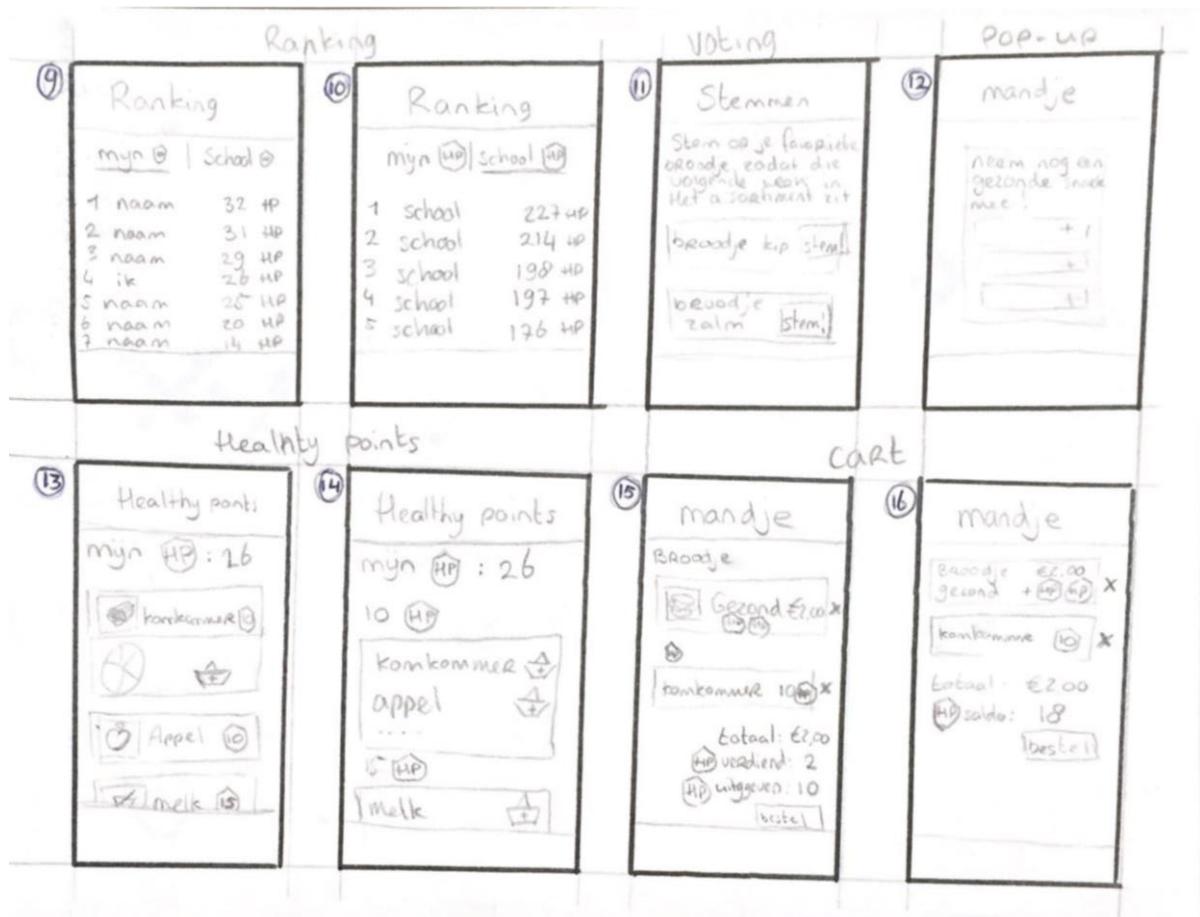 Ranking
Voting
POP-UP
9
Ranking
mijn | School
1 naam 32 HP
2 naam 31 HP
3 naam 29 HP
4 ik 26 HP
5 naam 25 HP
6 naam 20 HP
7 naam 14 HP
10
Ranking
mijn HP | school HP
1 school 227 HP
2 school 214 HP
3 school 198 HP
4 school 197 HP
5 school 176 HP
11
Stemmen
Stem op je favoriete
broodje zodat die
volgende week in
Het assortiment zit
broodje kip stem!
broodje
zalm stem!
12
mandje
neem nog een
gezonde snack
mee!
+
+
+
Healhty points
CART
13
Healthy ponts
mijn HP : 26
komkommer 10
+
Appel 10
melk 15
14
Healthy points
mijn HP : 26
10 HP
komkommer +
appel +
....
15 HP
melk +
15
mandje
BROODje
Gezond €2,00 x
HP HP
HP
komkommer 10 HP x
totaal: €2,00
HP verdiend: 2
HP uitgeven: 10
bestel
16
mandje
BROODje €2.00
gezond + HP HP x
komkommer 10 x
totaal: €2.00
HP saldo: 18
bestel